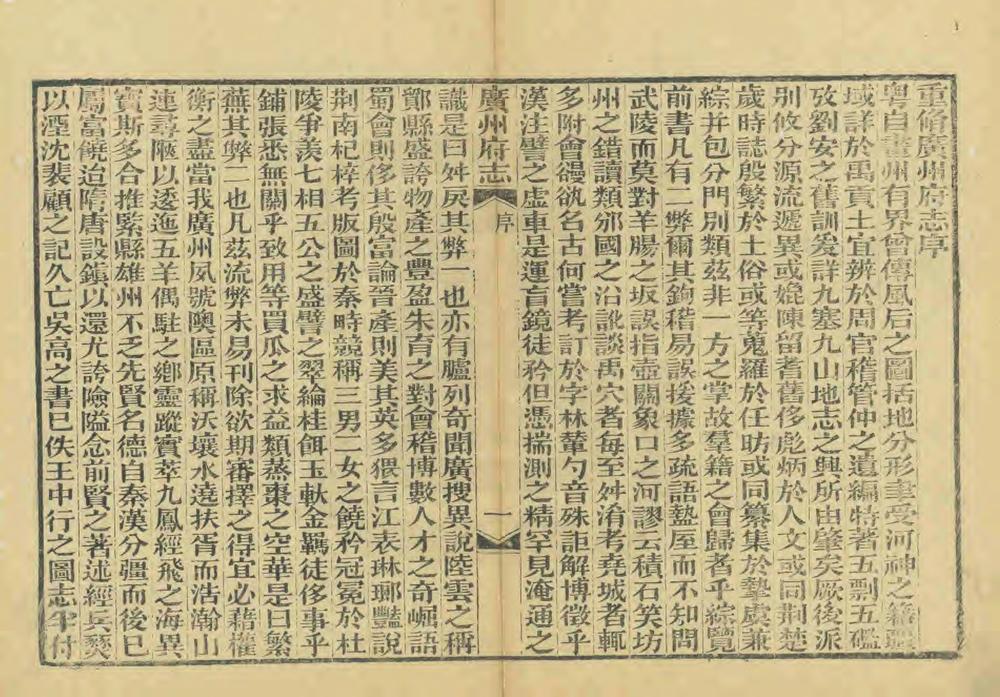 重脩廣州府志序
粵自畫州有界曾傳風后之圖括地分形聿受河神之籍疆
域詳於禹貢土宜辨於周官稽管仲之遺編特著五剽五礛
攷劉安之舊訓爰詳九塞九山地志之興所由肇矣厥後派
別攸分源流遞異或媲陳留耆舊侈彪炳於人文或同荆楚
歲時誌殷繁於土俗或等蒐羅於任昉或同纂集於摯虞兼
綜并包分門別類茲非一方之掌故羣籍之會歸者乎綜覽
前書凡有二弊爾其鉤稽易誤援據多疏語盩屋而不知問
武陵而莫對羊腸之坂誤指壺關象口之河謬云積石笑坊
州之錯讀類邠國之沿訛談禹穴者每至舛淆考堯城者輒
多附會謾欲名古何嘗考訂於字林輦勺音殊詎解博徵乎
漢注譬之虛車是運盲鏡徒矜但憑揣測之精罕見淹通之
廣州府志 序 一
識是曰舛戾其弊一也亦有臚列奇聞廣搜異說陸雲之稱
鄮縣盛誇物產之豐盈朱育之對會稽博數人才之奇崛語
蜀會則侈其殷富論晉產則美其英多猥言江表琳瑯豔說
荆南杞梓考版圖於秦時競稱三男二女之饒矜冠冕於杜
陵爭羨七相五公之盛譬之翠綸桂餌玉軑金羈徒侈事乎
鋪張悉無關乎致用等買瓜之求益類蒸棗之空華是曰繁
蕪其弊二也凡茲流弊未易刊除欲期審擇之得宜必藉權
衡之盡當我廣州夙號隩區原稱沃壤水澆扶胥而浩瀚山
連尋陿以逶迤五羊偶駐之鄉靈蹤實萃九鳳經飛之海異
寶斯多合推緊縣雄州不乏先賢名德自秦漢分疆而後已
屬富饒迨隋唐設鎮以還尤誇險隘念前賢之著述經兵燹
以湮沈裴顧之記久亡吳高之書已佚王中行之圖志半付